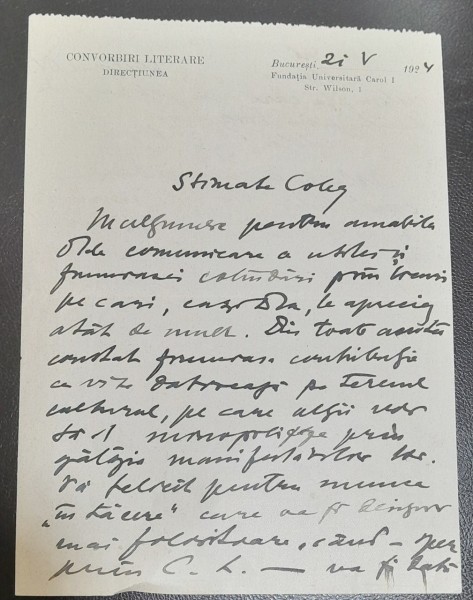 CONVORBIRI LITERARE
DIRECȚIUNEA
București 21 V 1924
Fundația Universitară Carol I
Str. Wilson, 1
Stimate Coleg
Mulțumesc pentru amabila
Dtale comunicare a utilei și
frumoasei prin
pe cari, ca și Dta, le apreciez
atât de mult. Din toate acestea
constat frumoasa contribuție
ce vine pe terenul
cultural, pe care alții vor
să-l monopolizeze prin
gălăgia manifestărilor lor.
Vă felicit pentru munca
„în tăcere" care va fi
mai folositoare, când – sper
prin C. L. – va fi